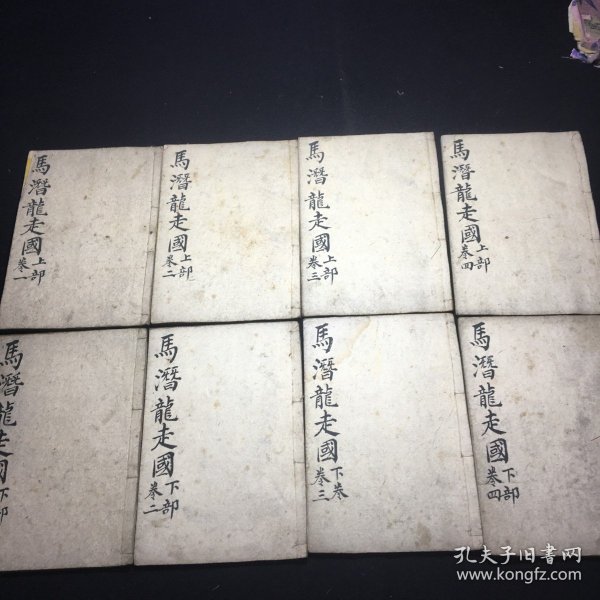 馬潛龍走國上部
卷一
馬潛龍走國上部
卷二
馬潛龍走國上部
卷三
馬潛龍走國上部
卷四
馬潛龍走國下部
馬潛龍走國下部
卷二
馬潛龍走國下卷
卷三
馬潛龍走國下部
卷四
孔夫子旧书网
www.kongfz.com